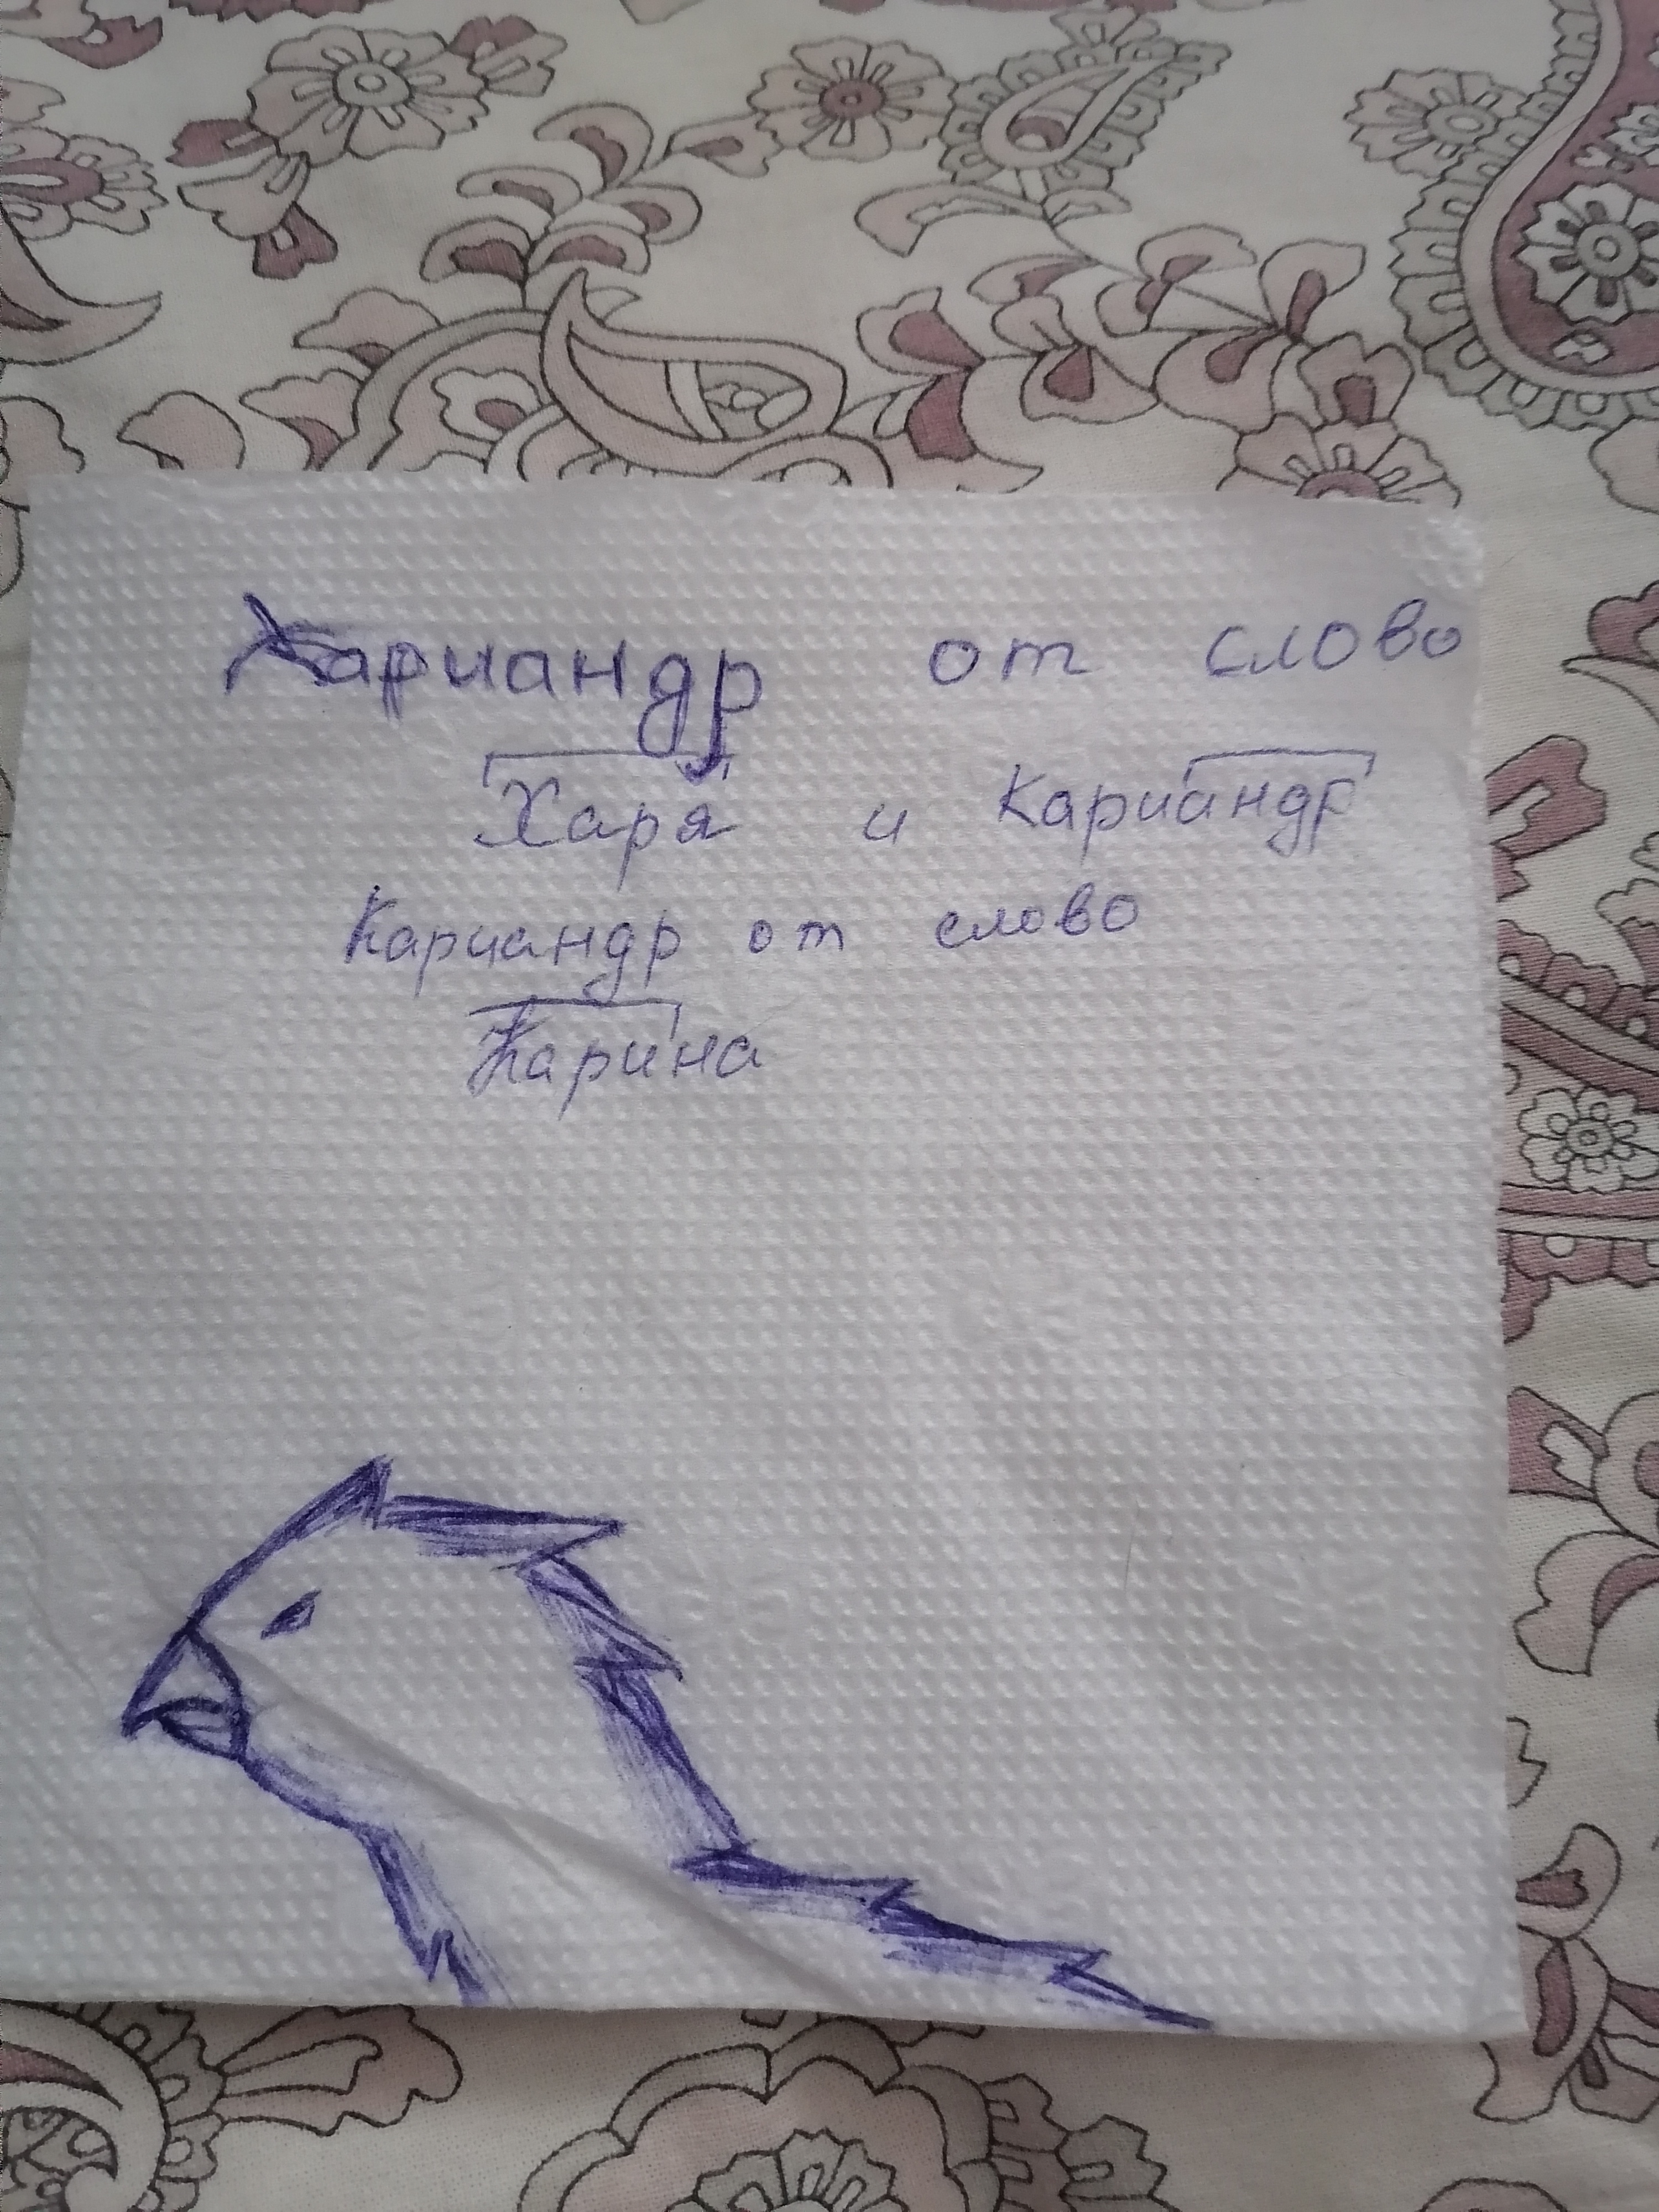 Хариандр от слово
Харя и Кариандр
Кариандр от слово
Карина